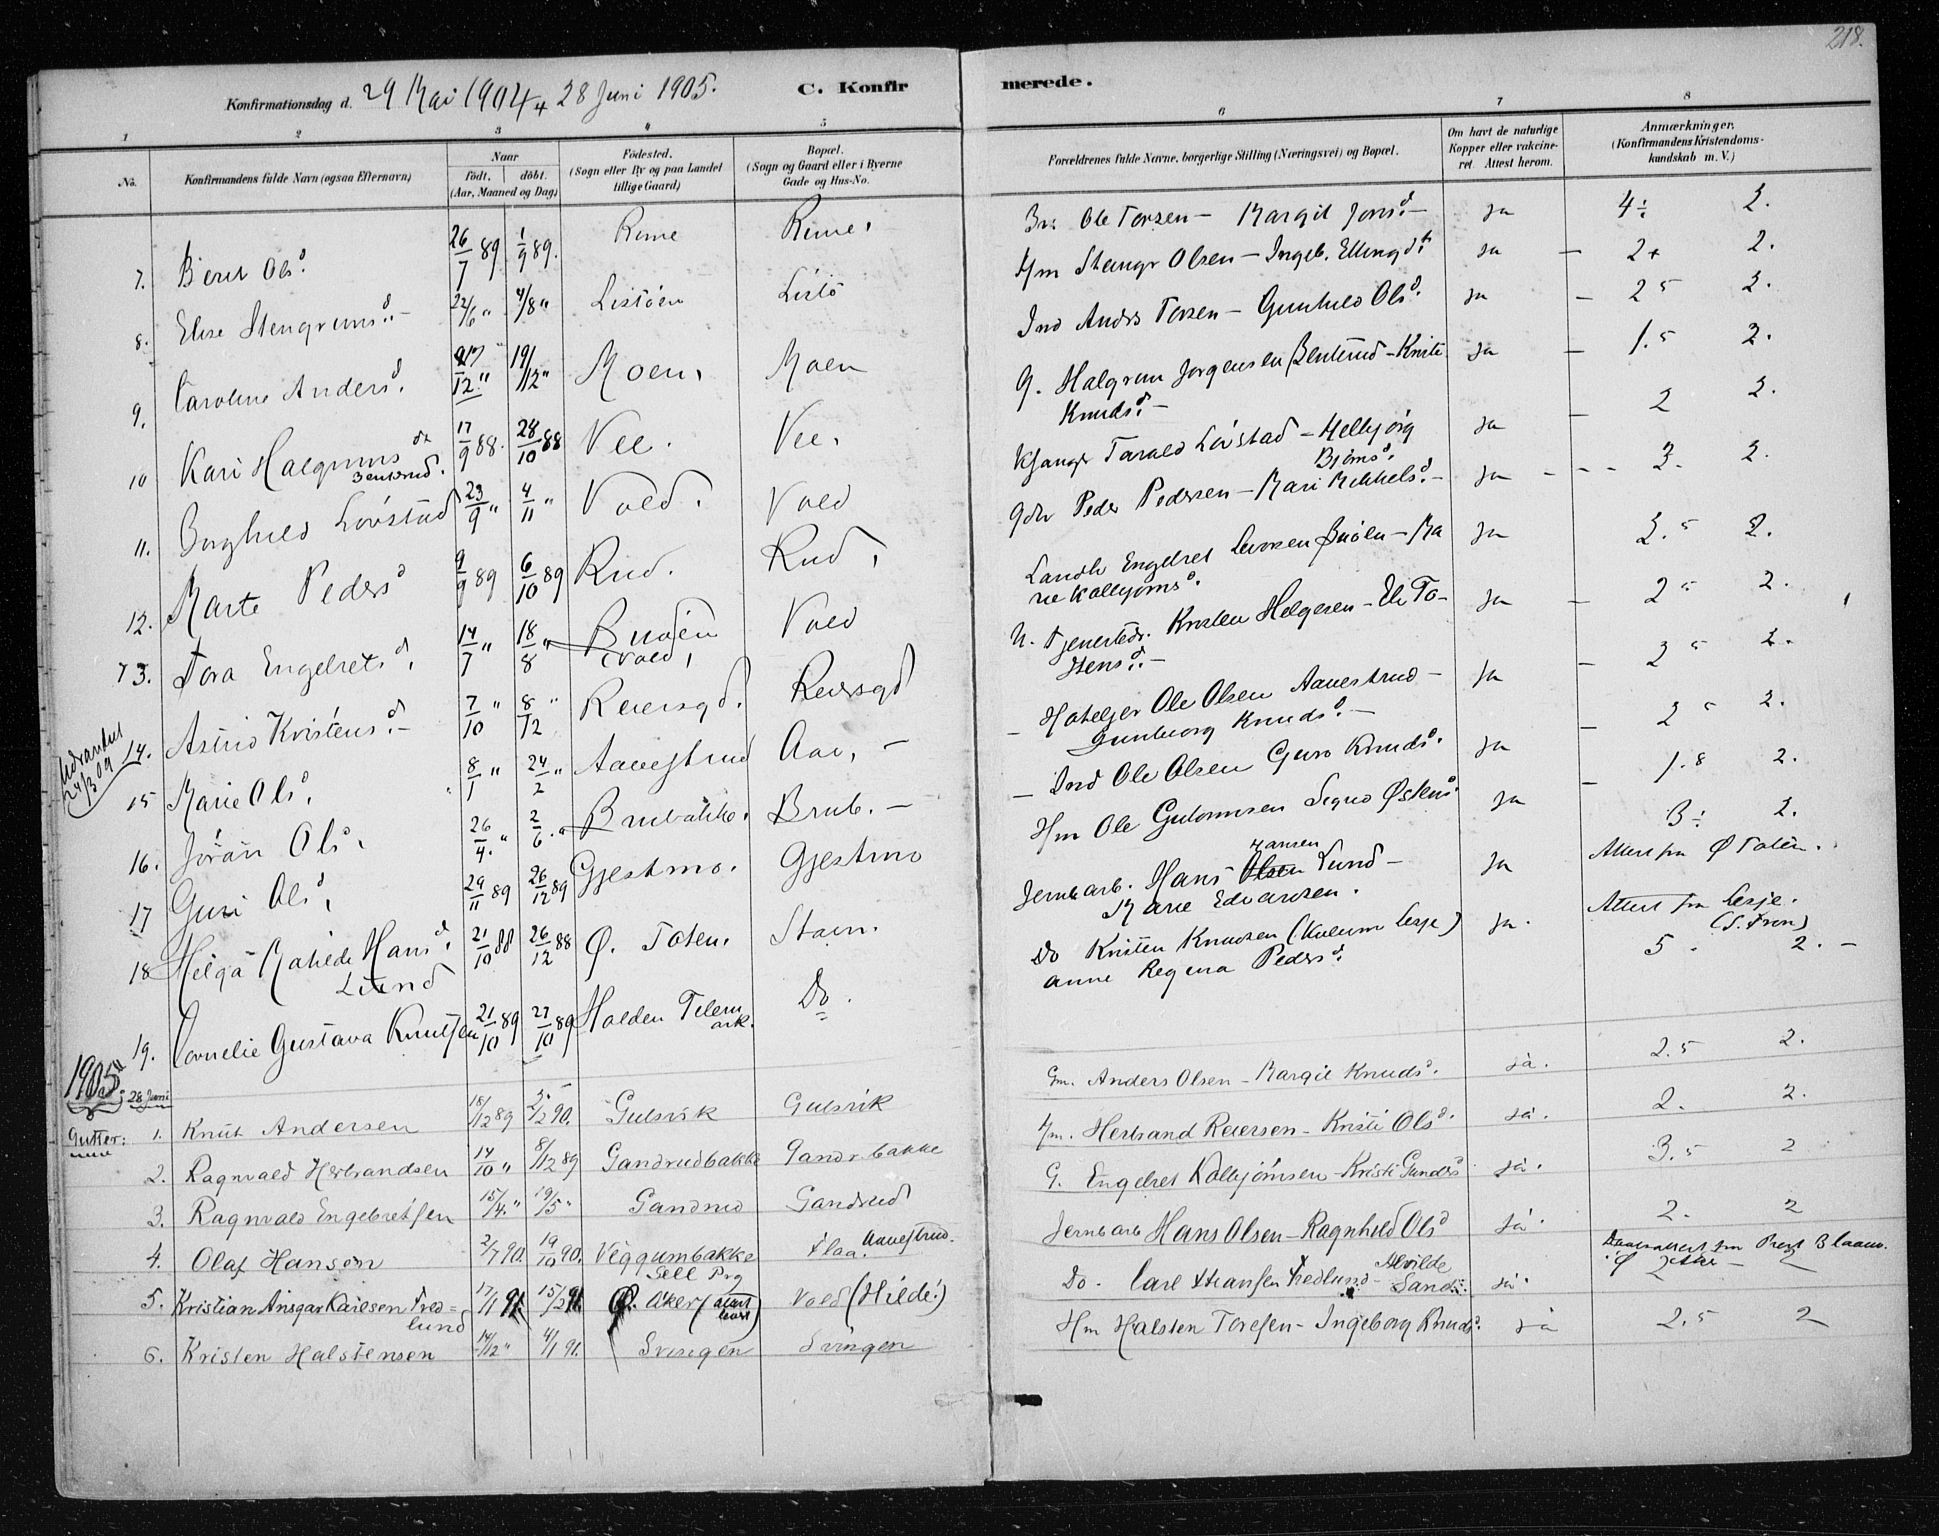 218.
Konfirmationsdag d. 29 Mai 1904 + 28 Juni 1905. C. Konfir merede.
1 2 3 4 5 6 7 8
No. Konfirmandens fulde Navn (ogsaa Efternavn) Naar född. döbt. (Aar, Maaned og Dag) Födested. (Sogn eller By og paa Landet tillige Gaard) Bopæl. (Sogn og Gaard eller i Byerne Gade og Hus-No. Forældrenes fulde Navne, borgerlige Stilling (Næringsvei) og Bopæl. Om havt de naturlige Kopper eller vaccineret Attest herom. Anmærkninger. (Konfirmandens Kristendomskundskab m. V.)
7. Berit Olsd. 26/7 89 1/9 89. Rime Rime. Br: Ole Torsen – Margit Jonsd. – ja 4÷ 2.
8. Elise Stengrimsd. – 22/6 " 4/8 " Listöen Listö Hm Stengr Olsen – Ingeb. Ellingsd. ja – 2+ 2.
9. Caroline Andersd. 12 " 19/12 " Moen. Moen Ind Anders Torsen – Gunhild Olsd. ja – 2 5 2.
10 Kari Halgrimsdt Benterud. 17/9 88. 28/10 88 Vee. Vee. G. Halgrim Jorgensen Benterud – Kristi Knudsd. – ja – 1.5 2.
11. Borghild Lövstad 23/9 " 4/11 " Vold. Vold Kjsangr Tarald Lövstad – Helbjörg Björnsd. ja – 2 2.
12. Marte Pedersd 9/9 89 6/10 89 Rud. Rud. Gdbr Peder Pedersen – Mari Mikkelsd. – ja – – – 3. 2.
13. Tora Engebretsd. 14/7 " 18/8 " Buöen (Vold) Vold Landh Engebret Buöen – Ma rie Kolbjörnsd. ja 2.5 2.
Udvandret 24/3 09
14. Astrid Kristensd. – 7/10 " 8/12 " Reiersgd. Reiersgd U. Tjenestedr. Kristen Helgesen – Ele To- stensd. – ja – 2 5 2.
15 Marie Olsd. 8/1 " 24/2 " Aavestrud Aav. – – Hotelejer Ole Olsen Aavestrud – Gunborg Knudsd. – ja – 2 5 2.
16. Jöran Olsd. 26/4. " 2/6. " Brubakke. Brub. – – Ind Ole Olsen Guro Knudsd. ja – 2 5 2.
17 Guri Olsd. 29/11 89 26/12 89 Gjestmo. Gjestmo Hm Ole Gulbransen Sigrid Østensd ja – 1.8 2.
3÷ 2.
18 Helga Matilde Hansd. Lund 21/10 88 26/12 88 Ø. Toten. Stavn. Jernbarb. Hans Olsen Hansen Lund – Marie Edvardsen. ja Attest fra Ø Toten.
19. Cornelie Gustava Knutsen 21/10 89 27/10 89 Holden Telem ark. Do. Do Kristen Knudsen (Kolum Lesje) Anne Regina Pedersd. ja. Attest fra Lesje. (S. Fron) 5 2. –
1905 28 Juni
Gutter: 1. Knut Andersen 18/12 89 5/2 90. Gulsvik Gulsvik Gm. Anders Olsen – Margit Knudsd. ja. 2.5 2.
2. Ragnvald Herbrandsen 14/10 " 8/12 89 Gandrudbakke Gandr.bakke Hm. Herbrand Reiersen – Kristi Olsd. ja. 2. 2.
3. Ragnvald Engebretsen 15/4. " 19/5 " Gandrud Gandrud G. Engebret Kolbjörnsen – Kristi Gundersd ja. 3.5 2
4. Olaf Hansen 2/7 90. 19/10 90. Viggumbakke Sell Prg Flaa. Aavestrud. Jernbarb Hans Olsen – Ragnhild Olsd ja. 2. 2
5. Kristian Ansgar Karlsen Fred= lund 17/1 91. 15/2 91. Ø. Aker Vold (Hilde) Do. Carl Fredlund – Alvilde Sand ja. Daabsattest fra Prest Blaauw. Ø 2 – 2
6. Kristen Halstensen 14/12 " 4/1 91. Svingen Svingen Hm Halsten Toresen – Ingeborg Knudsd. ja 2.5 2